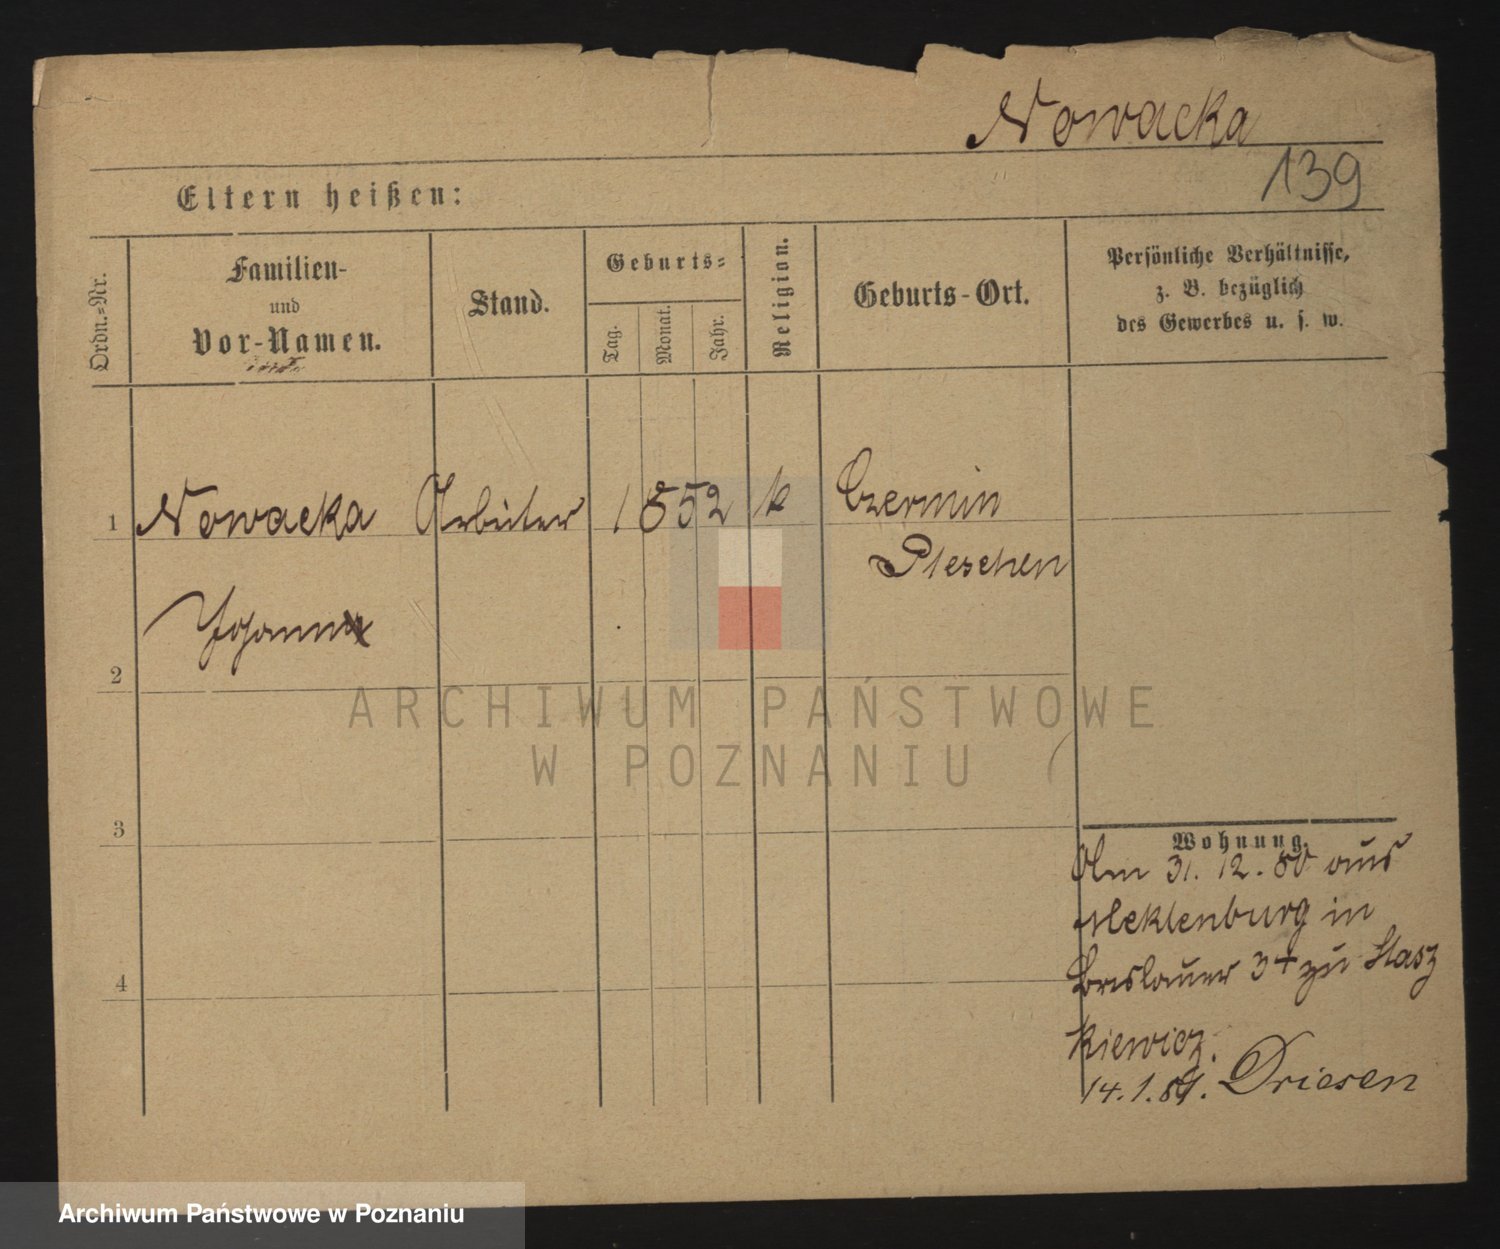 Nowacka
139
Eltern heißen:
Ordn.-Nr.
Familien-
und
Vor-Namen.
Stand.
Geburts-
Tag.
Monat.
Jahr.
Religion.
Geburts-Ort.
Persönliche Verhältnisse,
z. B. bezüglich
des Gewerbes u. s. w.
1 Nowacka Arbeiter 1852 k Czermin
Pleschen
Johann
2
3
4
Wohnung.
Am 31. 12. 80 aus
Meklenburg in
Breslauer 34 zu Stasz
kiewicz.
14. 1. 81. Driesen
ARCHIWUM PAŃSTWOWE
W POZNANIU
Archiwum Państwowe w Poznaniu